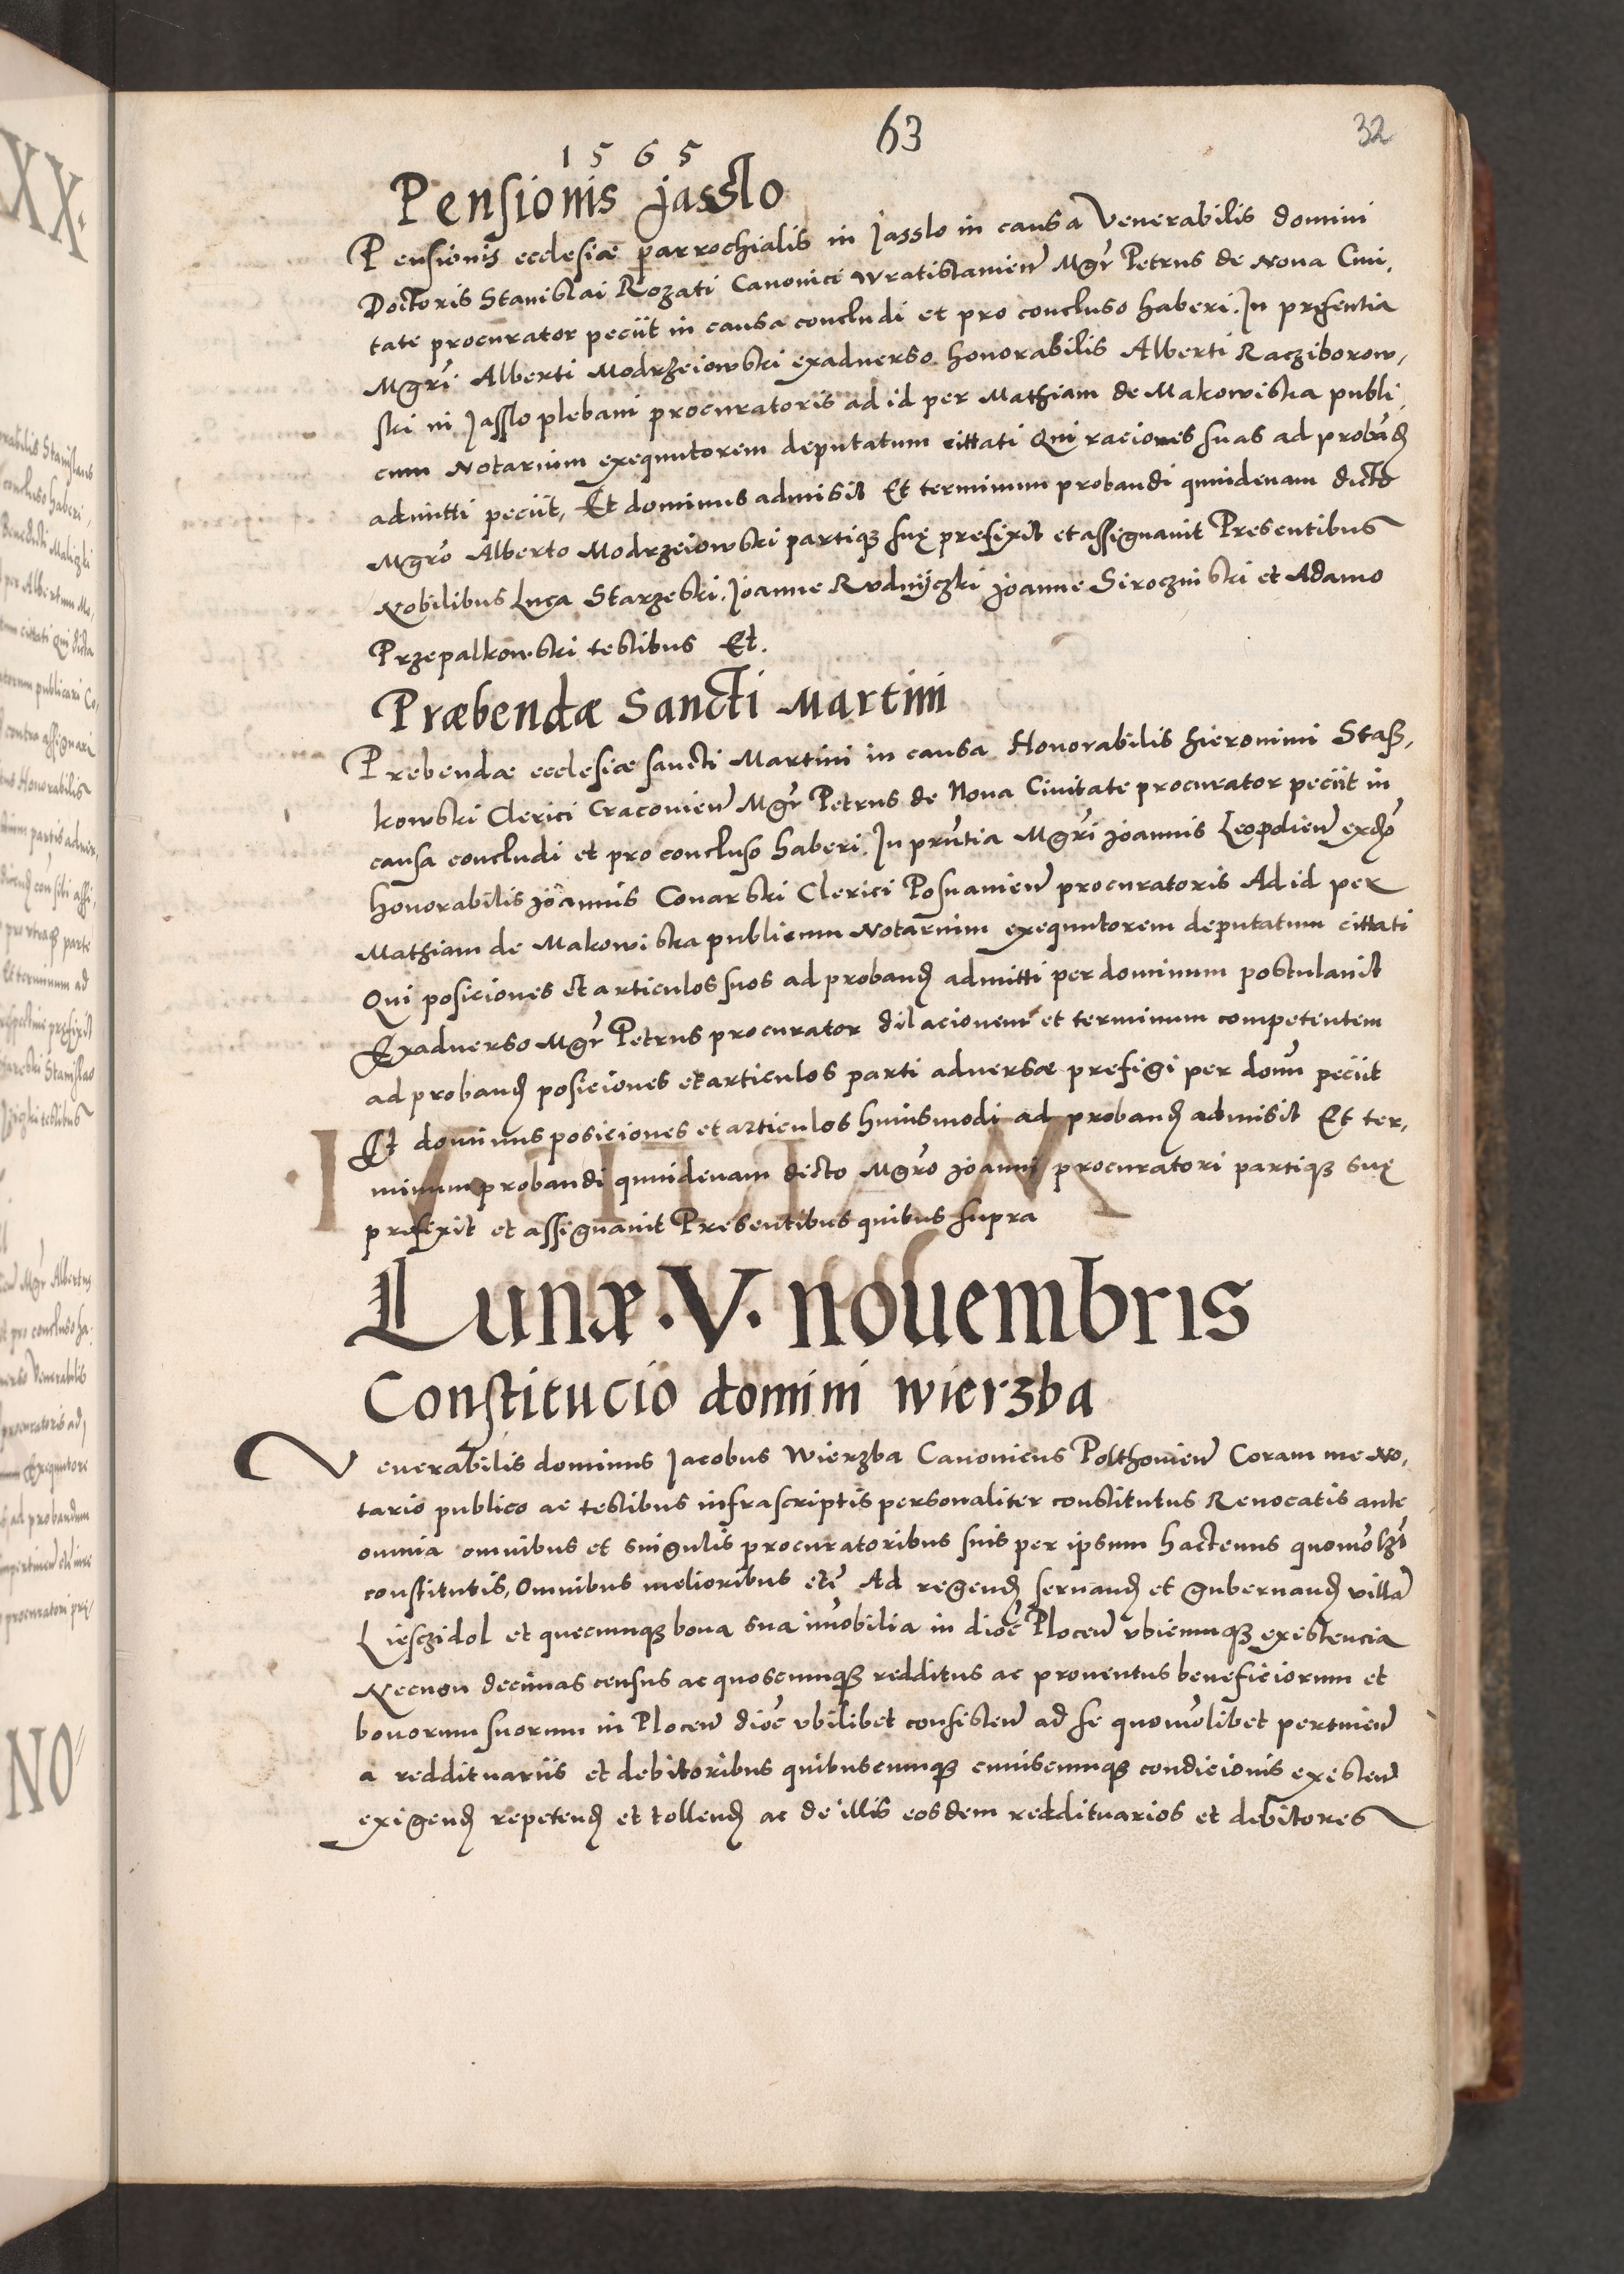 63
32
1565
Pensionis Jasslo
Pensionis ecclesiæ parrochialis in Jasslo in causa Venerabilis domini
Doctoris Stanislai Rozati Canonici Wratislauien Mgr Petrus de Noua Ciui,
tate procurator peciit in causa concludi et pro concluso haberi. In presentia
Mgri Alberti Modrzeiowski exaduerso honorabilis Alberti Racziborow,
ski in Jasslo plebani procuratoris ad id per Mathiam de Makowiska publi,
cum Notarium exequutorem deputatum cittati Qui raciones suas ad proband
admitti peciit, Et dominus admisit Et terminum probandi quindenam dicto
Mgro Alberto Modrzeiowski partiqꝫ suę prefixit et assignauit Presentibus
Nobilibus Luca Starzeski. Joanne Rudnyczki Joanne Siroczinski et Adamo
Przepalkowski testibus Et.
Præbendæ Sancti Martini
Prebendæ ecclesiæ sancti Martini in causa Honorabilis Hieronimi Staß,
kowski Clerici Cracouien Mgr Petrus de Noua Ciuitate procurator peciit in
causa concludi et pro concluso haberi. In prntia Mgri Joannis Leopolien exdo
honorabilis Joannis Conarski Clerici Posnanien procuratoris Ad id per
Mathiam de Makowiska publicum Notarium exequutorem deputatum cittati
Qui posiciones et articulos suos ad proband admitti per dominum postulauit
Exaduerso Mgr Petrus procurator dilacionem et terminum competentem
ad proband posiciones et articulos parti aduersæ prefigi per domn peciit
Et dominus posiciones et articulos huiusmodi ad proband admisit Et ter,
minum probandi quindenam dicto Mgro Joanni procuratori partiqꝫ suę
prefixit et assignauit Presentibus quibus supra
Lunæ · V · nouembris
Constitucio domini wierzba
Venerabilis dominus Jacobus Wierzba Canonicus Polthouien Coram me No,
tario publico ac testibus infrascriptis personaliter constitutus Reuocatis ante
omnia omnibus et singulis procuratoribus suis per ipsum hactenus quomolzt
constitutis, Omnibus melioribus etc Ad regend seruand et gubernand villa
Liesczidol et quecumqꝫ bona sua imobilia in dioc Plocen vbicumqꝫ existencia
Necnon decimas census ac quoscumqꝫ redditus ac prouentus beneficiorum et
bonorum suorum in Plocen dioc vbilibet consisten ad se quomolibet pertinen
a reddituariis et debitoribus quibuscumqꝫ cuiuscumqꝫ condicionis existen
exigend repetend et tollend ac de illis eosdem reddituarios et debitores